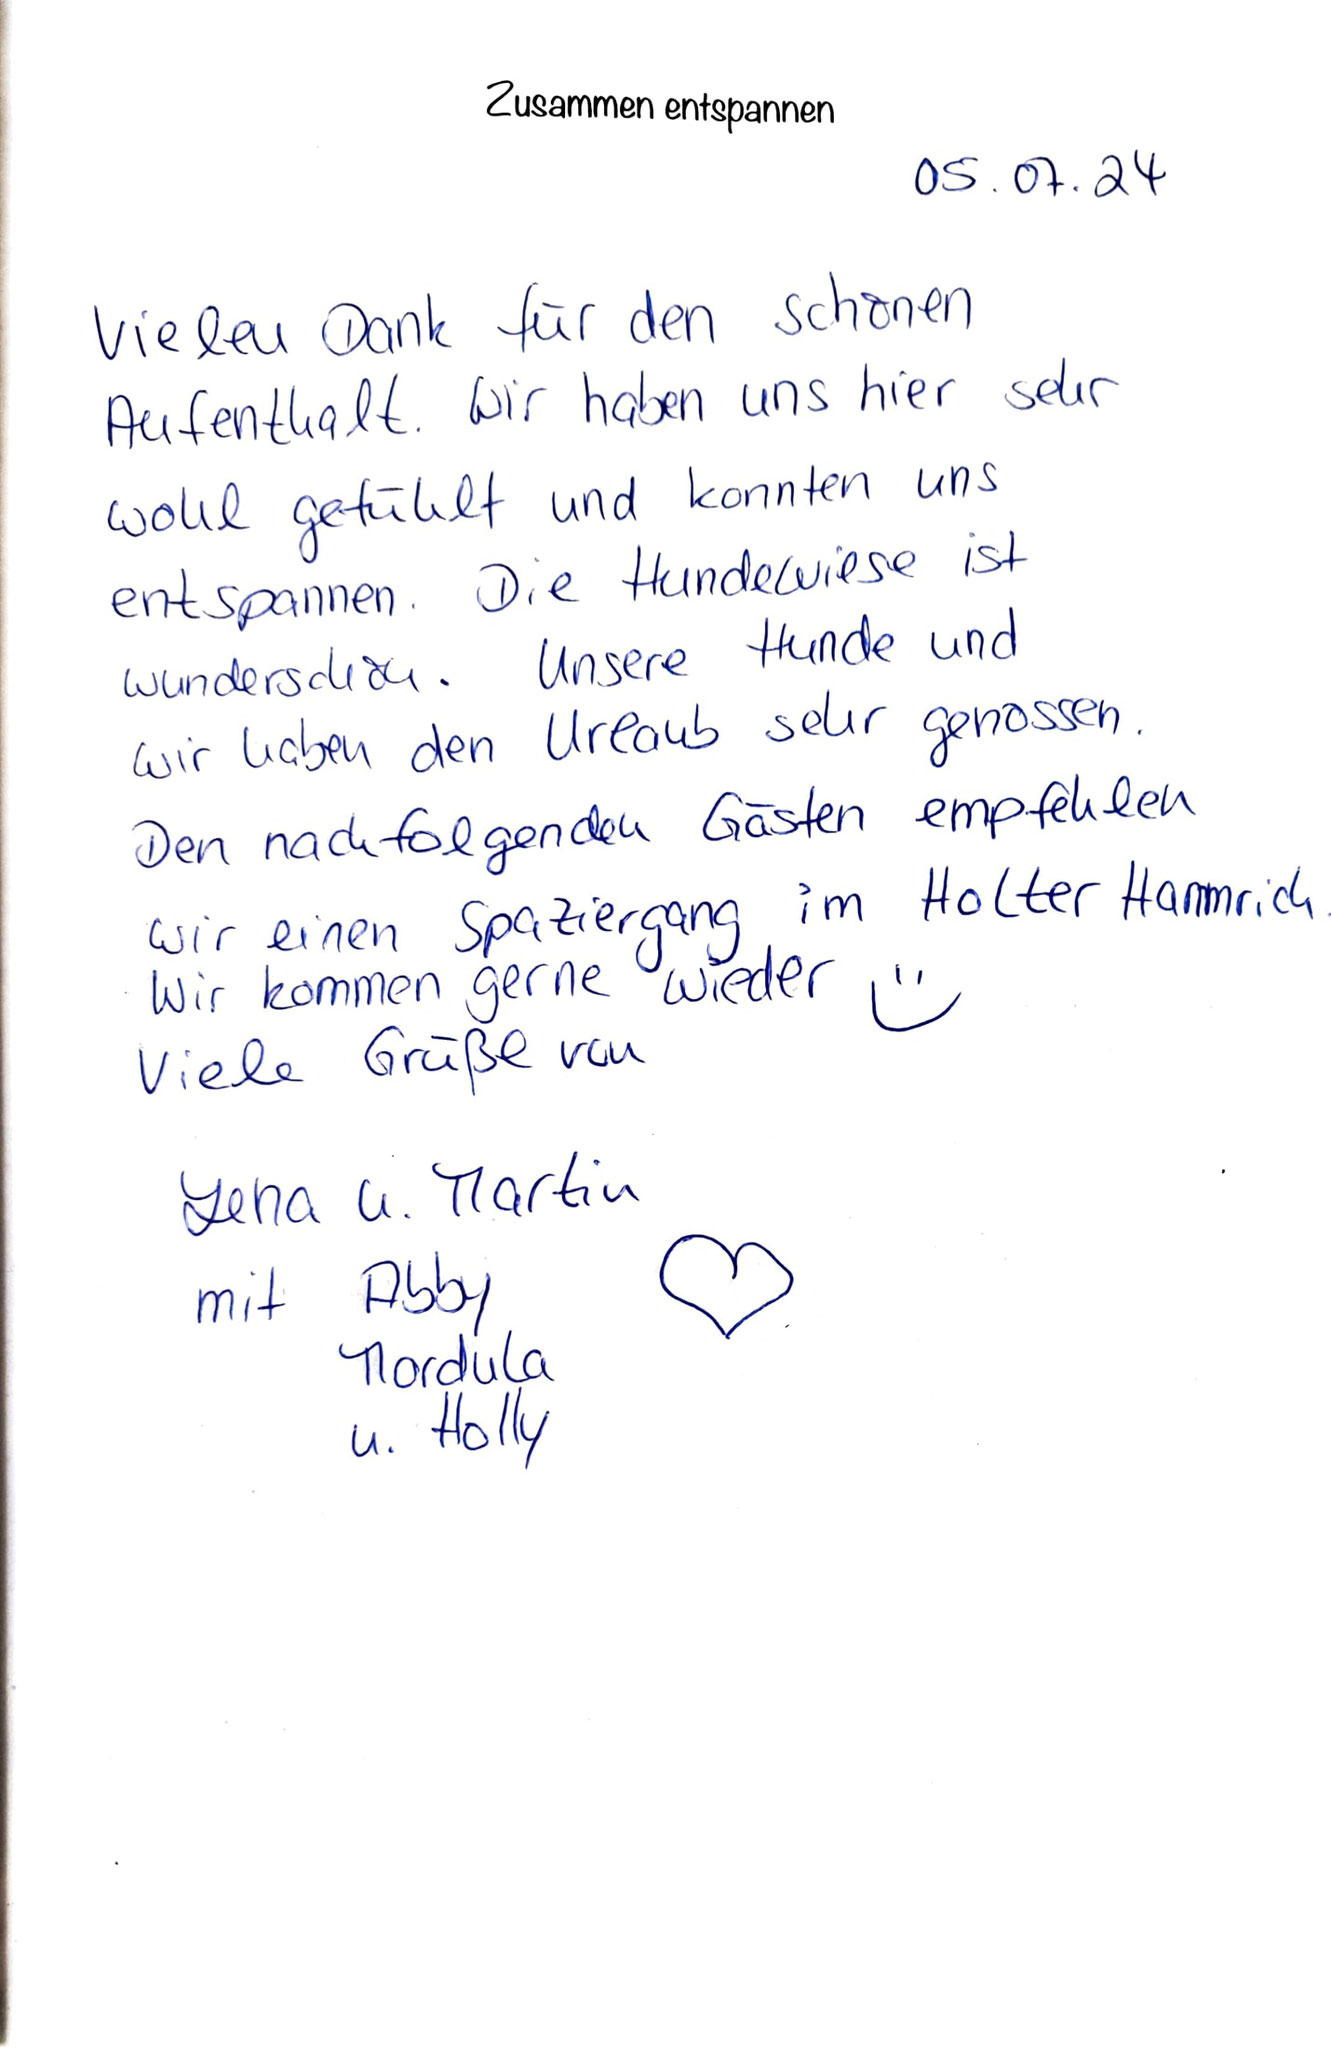 Zusammen entspannen
05.07.24
Vielen Dank für den schönen
Aufenthalt. Wir haben uns hier sehr
wohl gefühlt und konnten uns
entspannen. Die Hundewiese ist
wunderschön. Unsere Hunde und
wir haben den Urlaub sehr genossen.
Den nachfolgenden Gästen empfehlen
wir einen Spaziergang im Holter Hammrich.
Wir kommen gerne wieder
Viele Grüße von
Lena u. Martin
mit Abby
Mordula
u. Holly